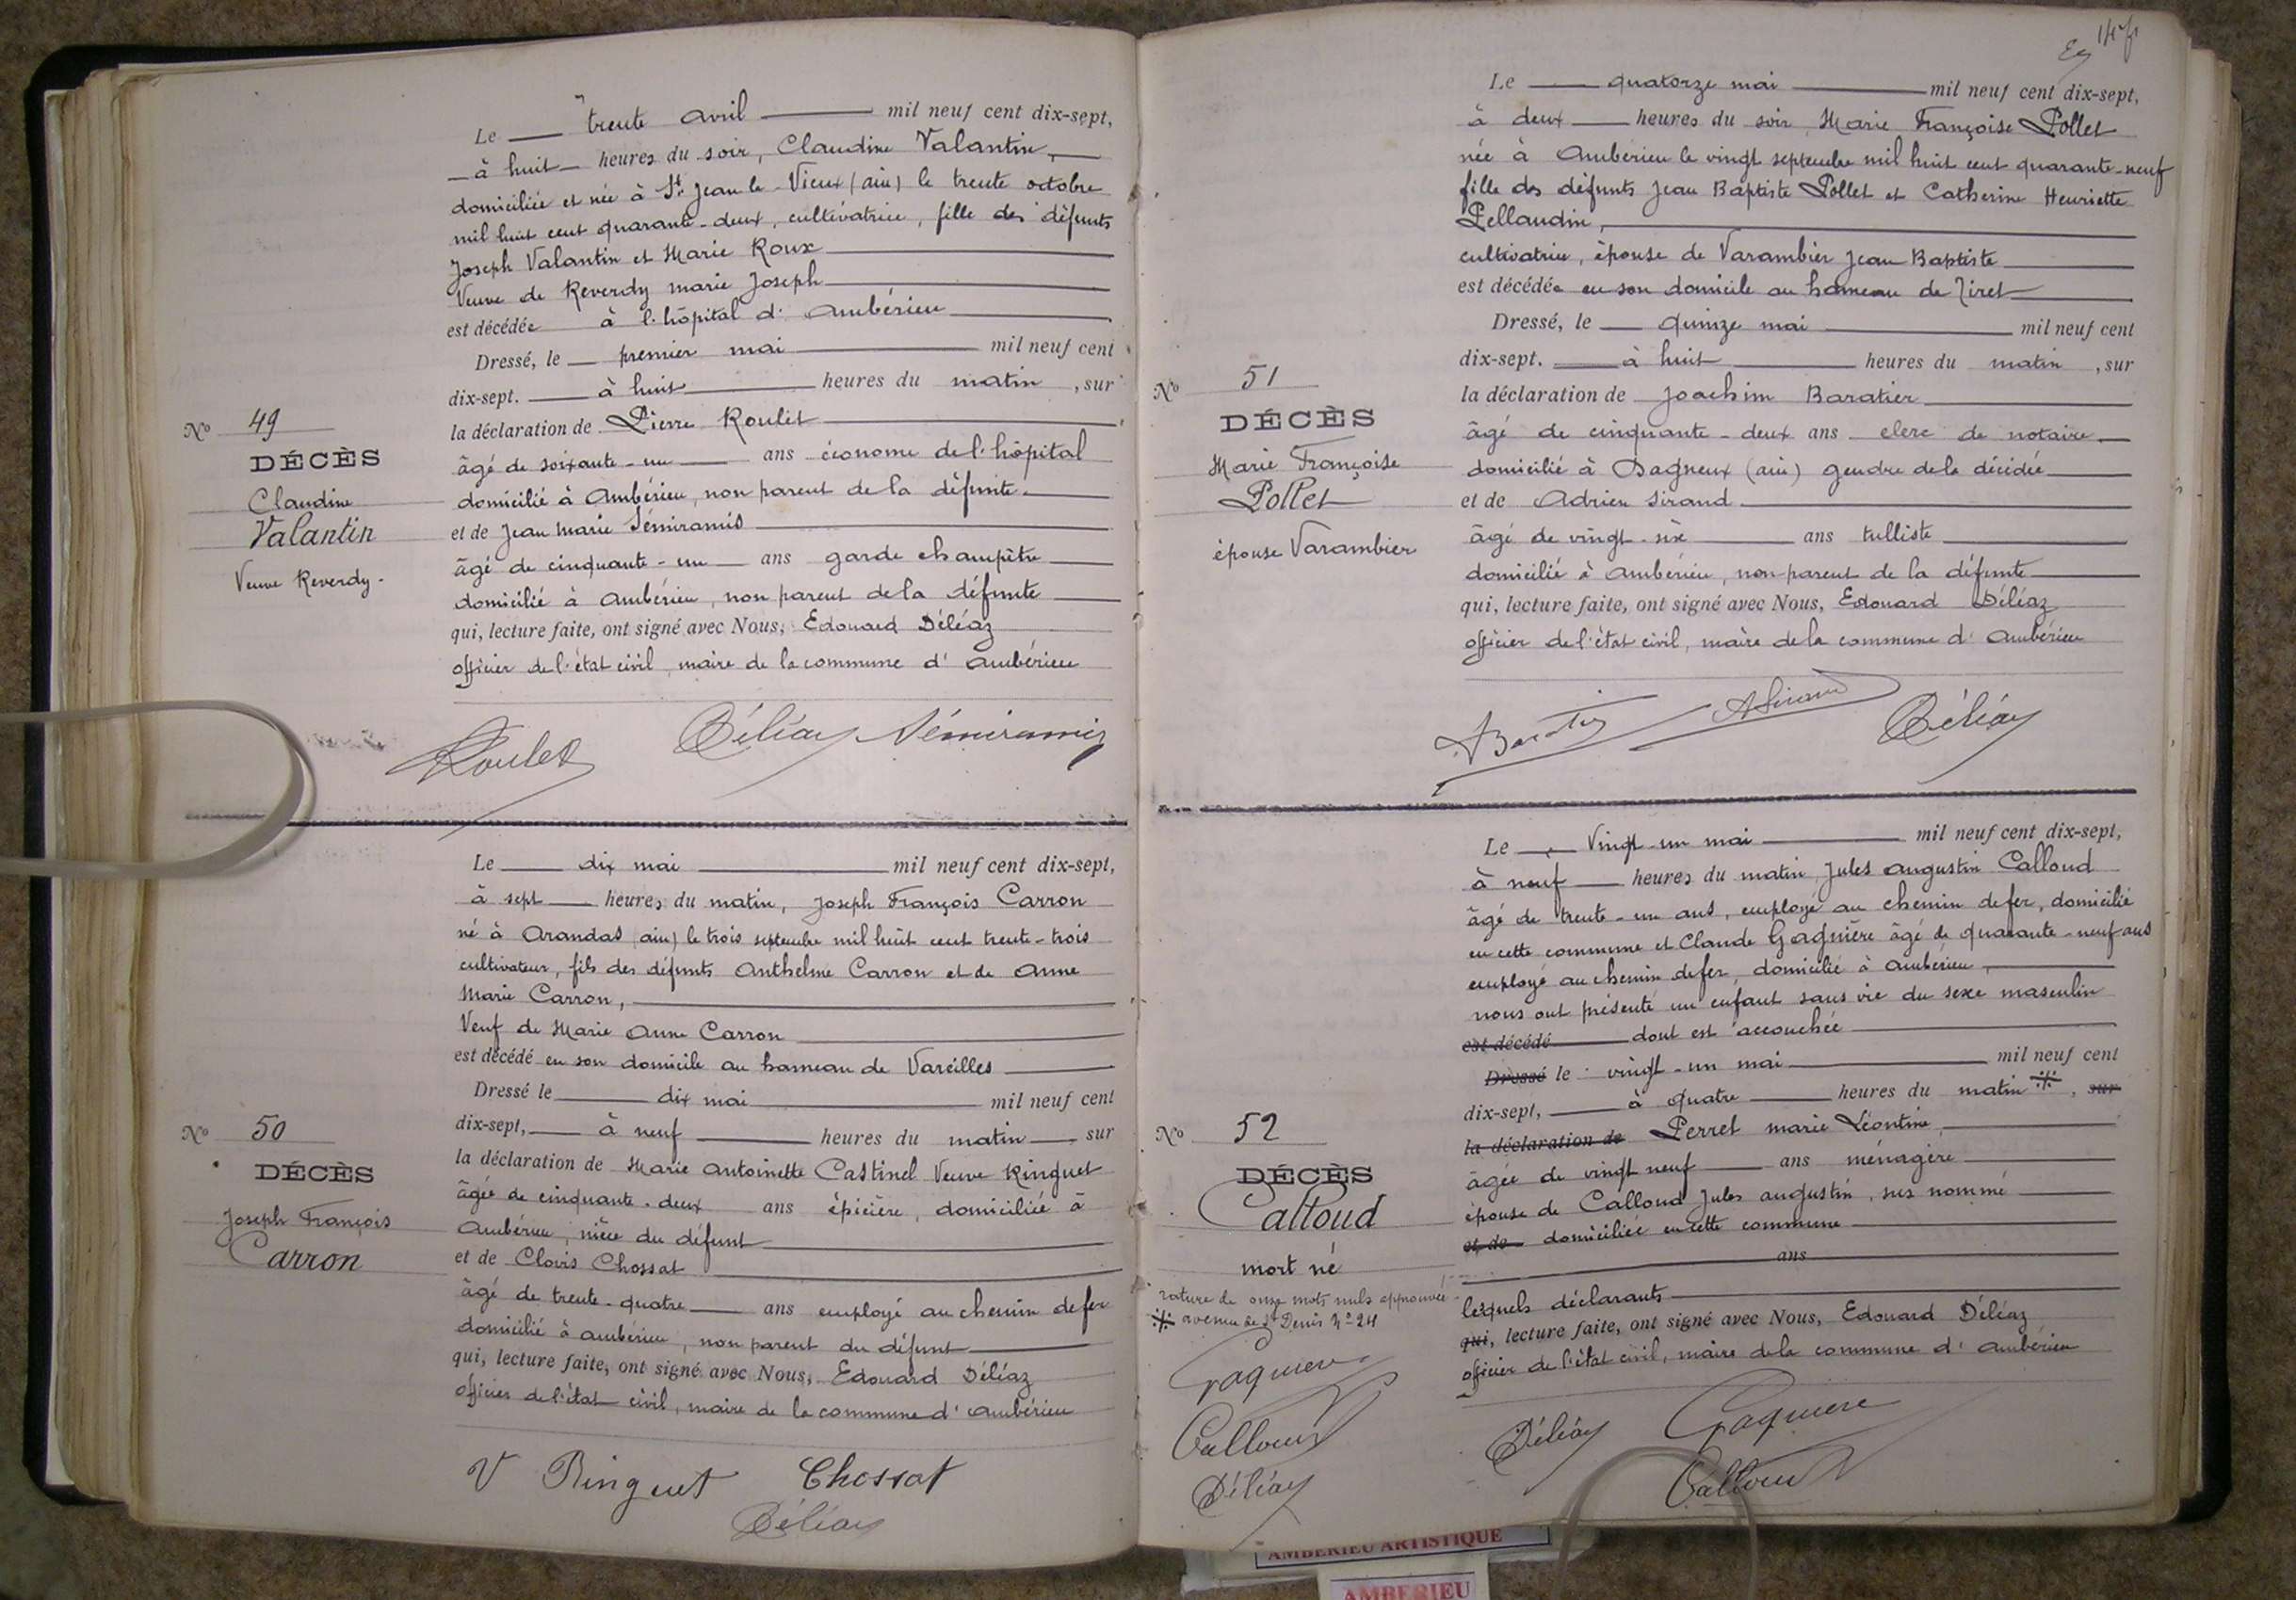 Le treute avril mil neuf cent dix-sept,
à huit heures du soir, Claudine Valantin,
domiciliée et née à St Jean le Vieux (ain) le trente octobre
mil huit cent quarante-deux, cultivatrice, fille des défunts
Joseph Valantin et Marie Roux
Veuve de Reverdy marie Joseph
est décédée à l'hôpital d'Ambérieu
Dressé, le premier mai mil neuf cent
dix-sept. à huit heures du matin, sur
la déclaration de Pierre Roulet
âgé de soixante-un ans économe de l'hôpital
domicilié à Ambérieu, non parent de la défunte
et de Jean marie Sémiramis
âgé de cinquante-un ans garde champêtre
domicilié à Ambérieu, non parent de la défunte
qui, lecture faite, ont signé avec Nous, Edouard Déléaz
officier de l'état civil, maire de la commune d'Ambérieu
Nº 49
DÉCÈS
Claudine
Valantin
Veuve Reverdy.
Roulet Déléaz Sémiramis
Le dix mai mil neuf cent dix-sept,
à sept heures du matin, Joseph François Carron
né à Arandas (ain) le trois septembre mil huit cent trente-trois
cultivateur, fils des défunts Anthelme Carron et de Anne
Marie Carron,
Veuf de Marie Anne Carron
est décédé en son domicile au hameau de Vareilles
Dressé le dix mai mil neuf cent
dix-sept, à neuf heures du matin, sur
la déclaration de Marie Antoinette Castinel Veuve Ringuet
âgée de cinquante-deux ans épicière, domiciliée à
Ambérieu, nièce du défunt
et de Clovis Chossat
âgé de trente-quatre ans employé au chemin de fer
domicilié à Ambérieu, non parent du défunt
qui, lecture faite, ont signé avec Nous, Edouard Déléaz
officier de l'état civil, maire de la commune d'Ambérieu
Nº 50
DÉCÈS
Joseph François
Carron
V Ringuet Chossat
Déléaz
Le quatorze mai mil neuf cent dix-sept,
à deux heures du soir Marie Françoise Pollet
née à Ambérieu le vingt septembre mil huit cent quarante-neuf
fille des défunts Jean Baptiste Pollet et Catherine Henriette
Pellaudin,
cultivatrice, épouse de Varambier Jean Baptiste
est décédée en son domicile au hameau de Tiret
Dressé, le quinze mai mil neuf cent
dix-sept. à huit heures du matin, sur
la déclaration de Joachim Baratier
âgé de cinquante-deux ans clerc de notaire
domicilié à Dagneux (ain) gendre de la décédée
et de Adrien Sirand
âgé de vingt-six ans tulliste
domicilié à Ambérieu, non parent de la défunte
qui, lecture faite, ont signé avec Nous, Edouard Déléaz
officier de l'état civil, maire de la commune d'Ambérieu
Nº 51
DÉCÈS
Marie Françoise
Pollet
épouse Varambier
Baratier ASirand Déléaz
Le Vingt-un mai mil neuf cent dix-sept,
à neuf heures du matin Jules augustin Calloud
âgé de trente-un ans, employé au chemin de fer, domicilié
en cette commune et Claude Gagnière âgé de quarante-neuf ans
employé au chemin de fer, domicilié à Ambérieu,
nous ont présenté un enfant sans vie du sexe masculin
est décédé dont est accouchée
Dressé le vingt-un mai mil neuf cent
dix-sept, à quatre heures du matin ※, sur
la déclaration de Perret marie Léontine,
âgée de vingt neuf ans ménagère
épouse de Calloud Jules augustin, sus nommé
et de domiciliée en cette commune
ans
lesquels déclarants
qui, lecture faite, ont signé avec Nous, Edouard Déléaz
officier de l'état civil, maire de la commune d'Ambérieu
Nº 52
DÉCÈS
Calloud
mort né
rature de onze mots nuls approuvée
※ avenue de St Denis Nº 24
Gagniere
Calloud
Déléaz
Déléaz Gagniere
Calloud
AMBERIEU ARTISTIQUE
AMBERIEU